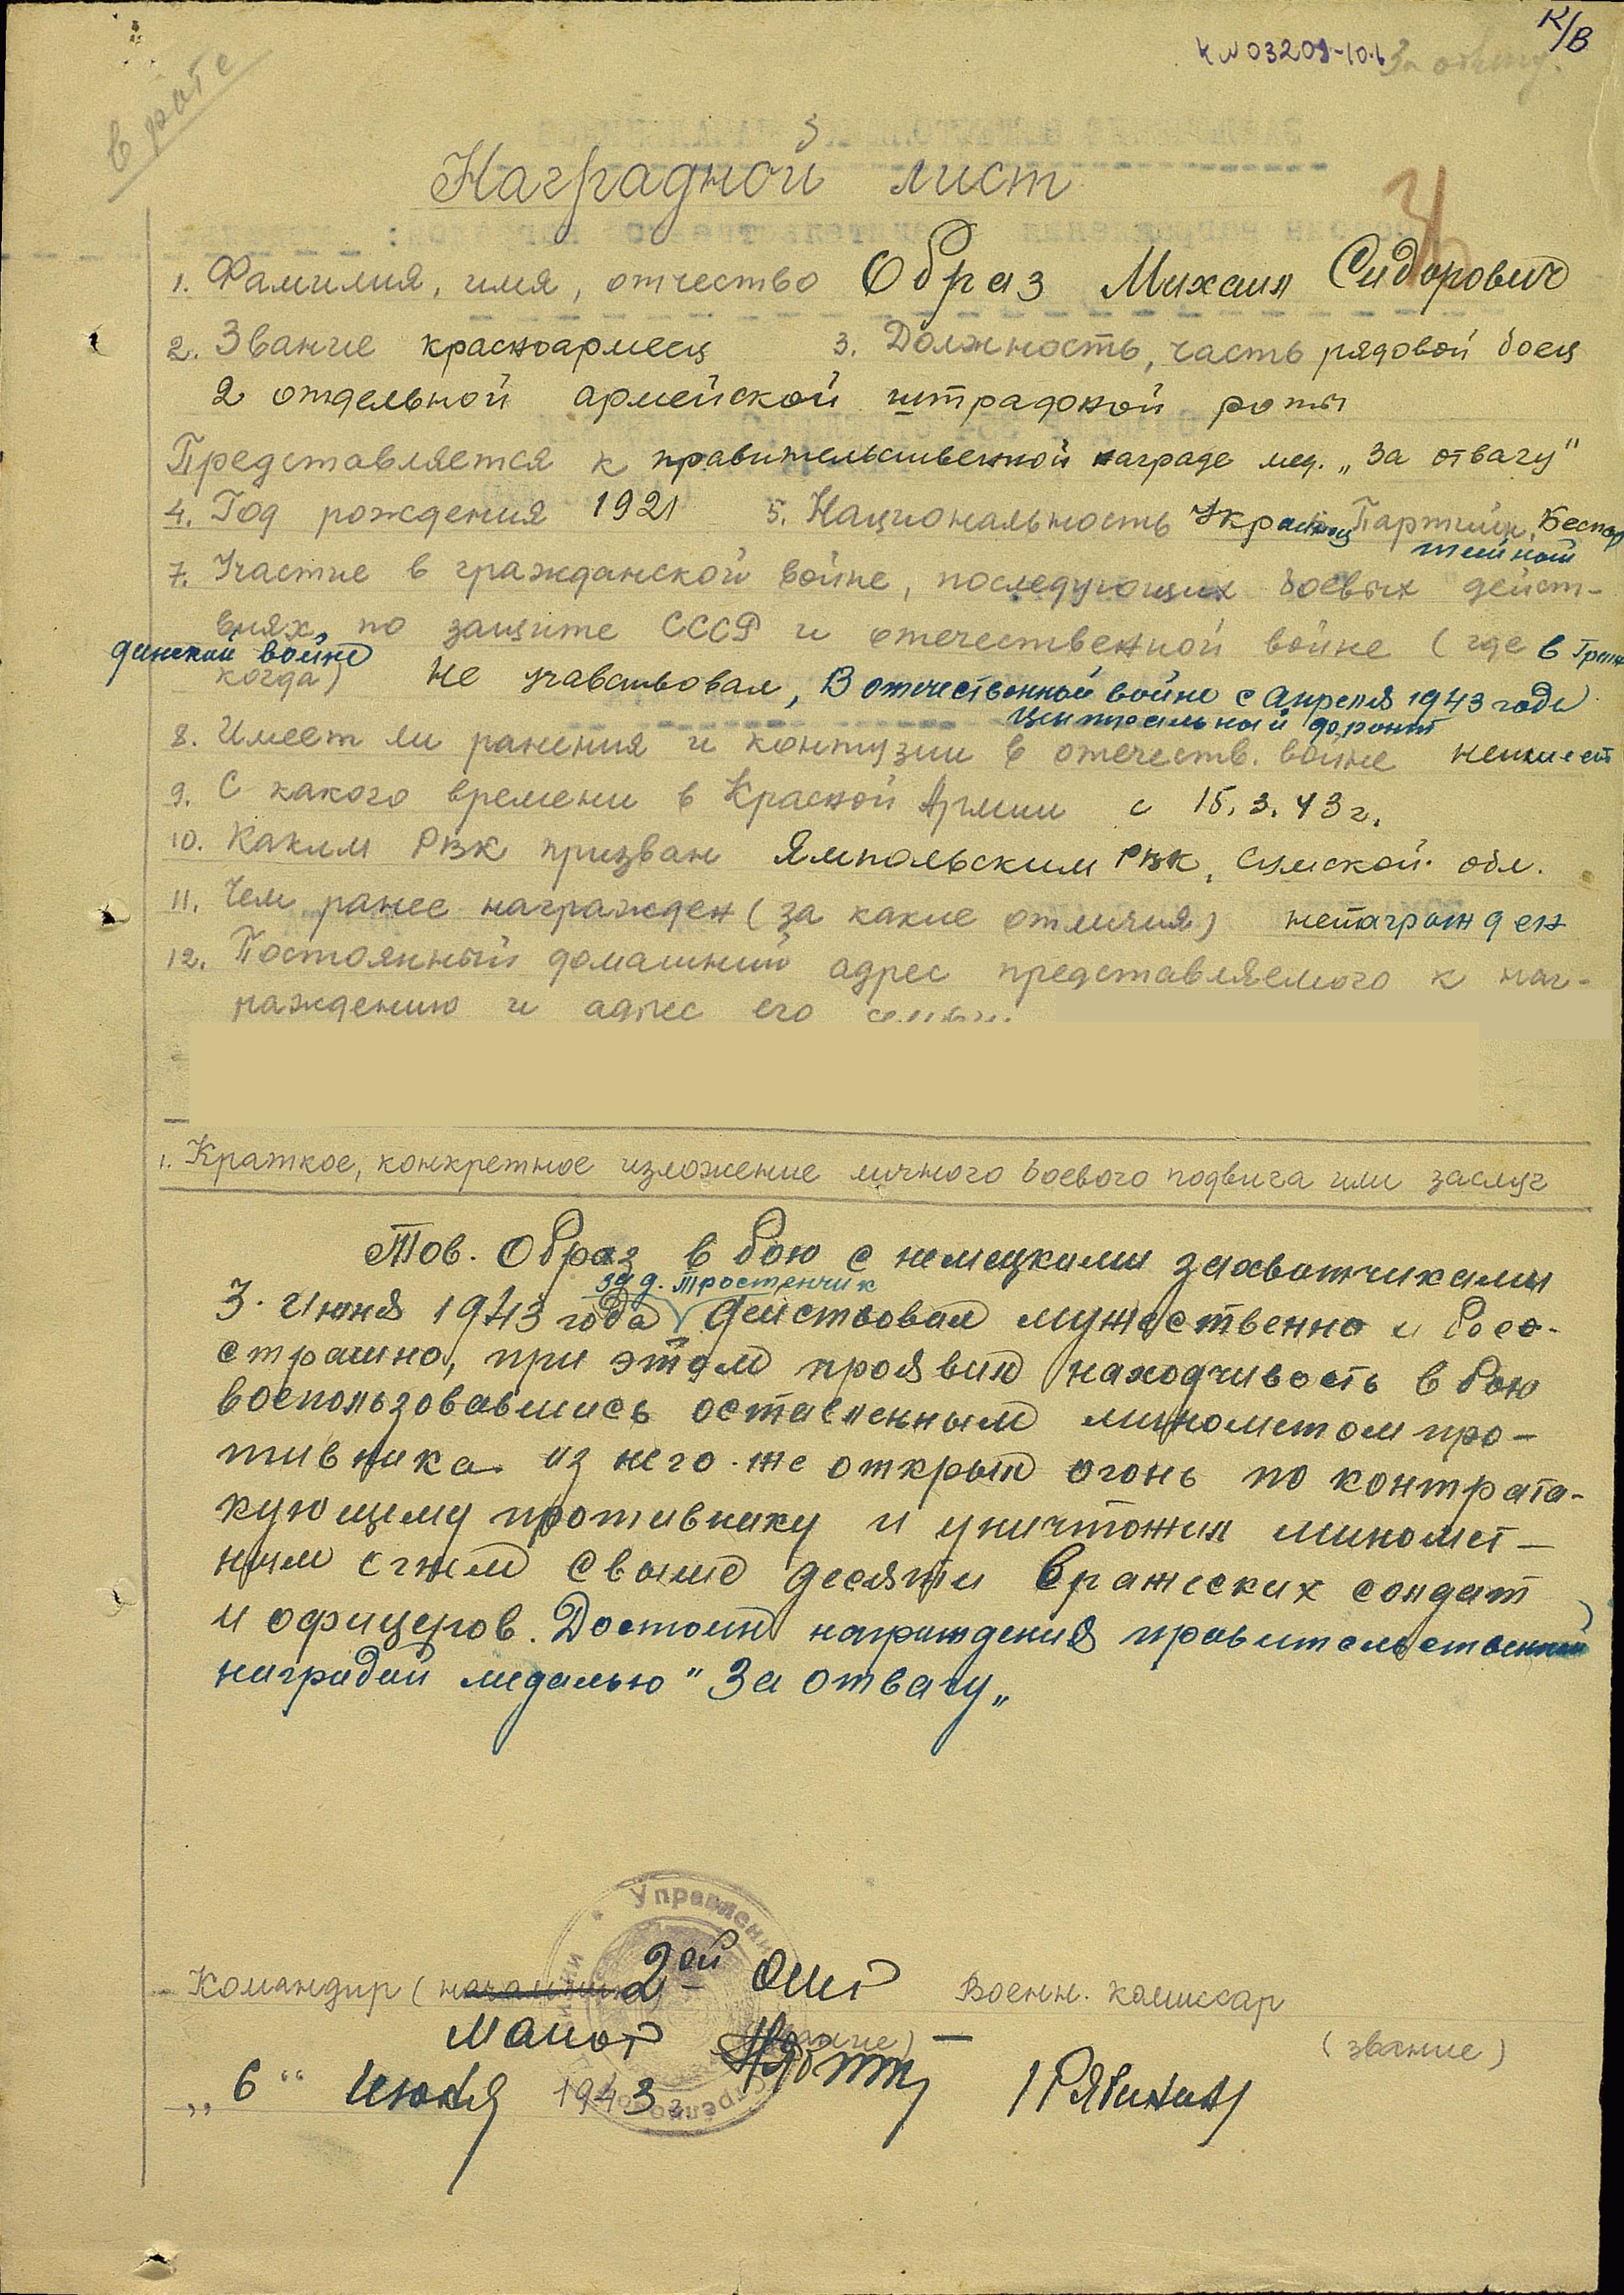 К/В
в роте
За отвагу.
Наградной лист
1. Фамилия, имя, отчество Образ Михаил Сидорович
2. Звание красноармеец 3. Должность, часть рядовой боец
2 отдельной армейской штрафной роты
Представляется к правительственной награде мед. „За отвагу"
4. Год рождения 1921 5. Национальность Украинец Партийн. Беспар
тейный
7. Участие в гражданской войне, последующих боевых дейст-
виях по защите СССР и отечественной войне (где в Граж
данской войне
когда) не учавствовал, В отечественной войне с апреля 1943 года
Центральный фронт
8. Имеет ли ранения и контузии в отечеств. войне неимеет
9. С какого времени в Красной Армии с 15.3.43 г.
10. Каким РВК призван Ямпольским РВК, Сумской обл.
11. Чем ранее награжден (за какие отличия) ненагражден
12. Постоянный домашний адрес представляемого к наг-
раждению и адрес его семьи:
1. Краткое, конкретное изложение личного боевого подвига или заслуг
Тов. Образ в бою с немецкими захватчиками
за д. Тростенчик
3. Июня 1943 года действовал мужественно и бесс-
страшно, при этом проявил находчивость в бою
воспользовавшись оставленным минометом про-
тивника из него-же открыл огонь по контрата-
кующему противнику и уничтожил миномет-
ным огнем свыше десяти вражеских солдат
и офицеров. Достоин награждения правительственной
наградой медалью "За отвагу„
Управление
Командир (начальник) 2ой ОШР Военн. комиссар
майор (звание) — (звание)
„6" Июня 1943 г. /Рябинин/